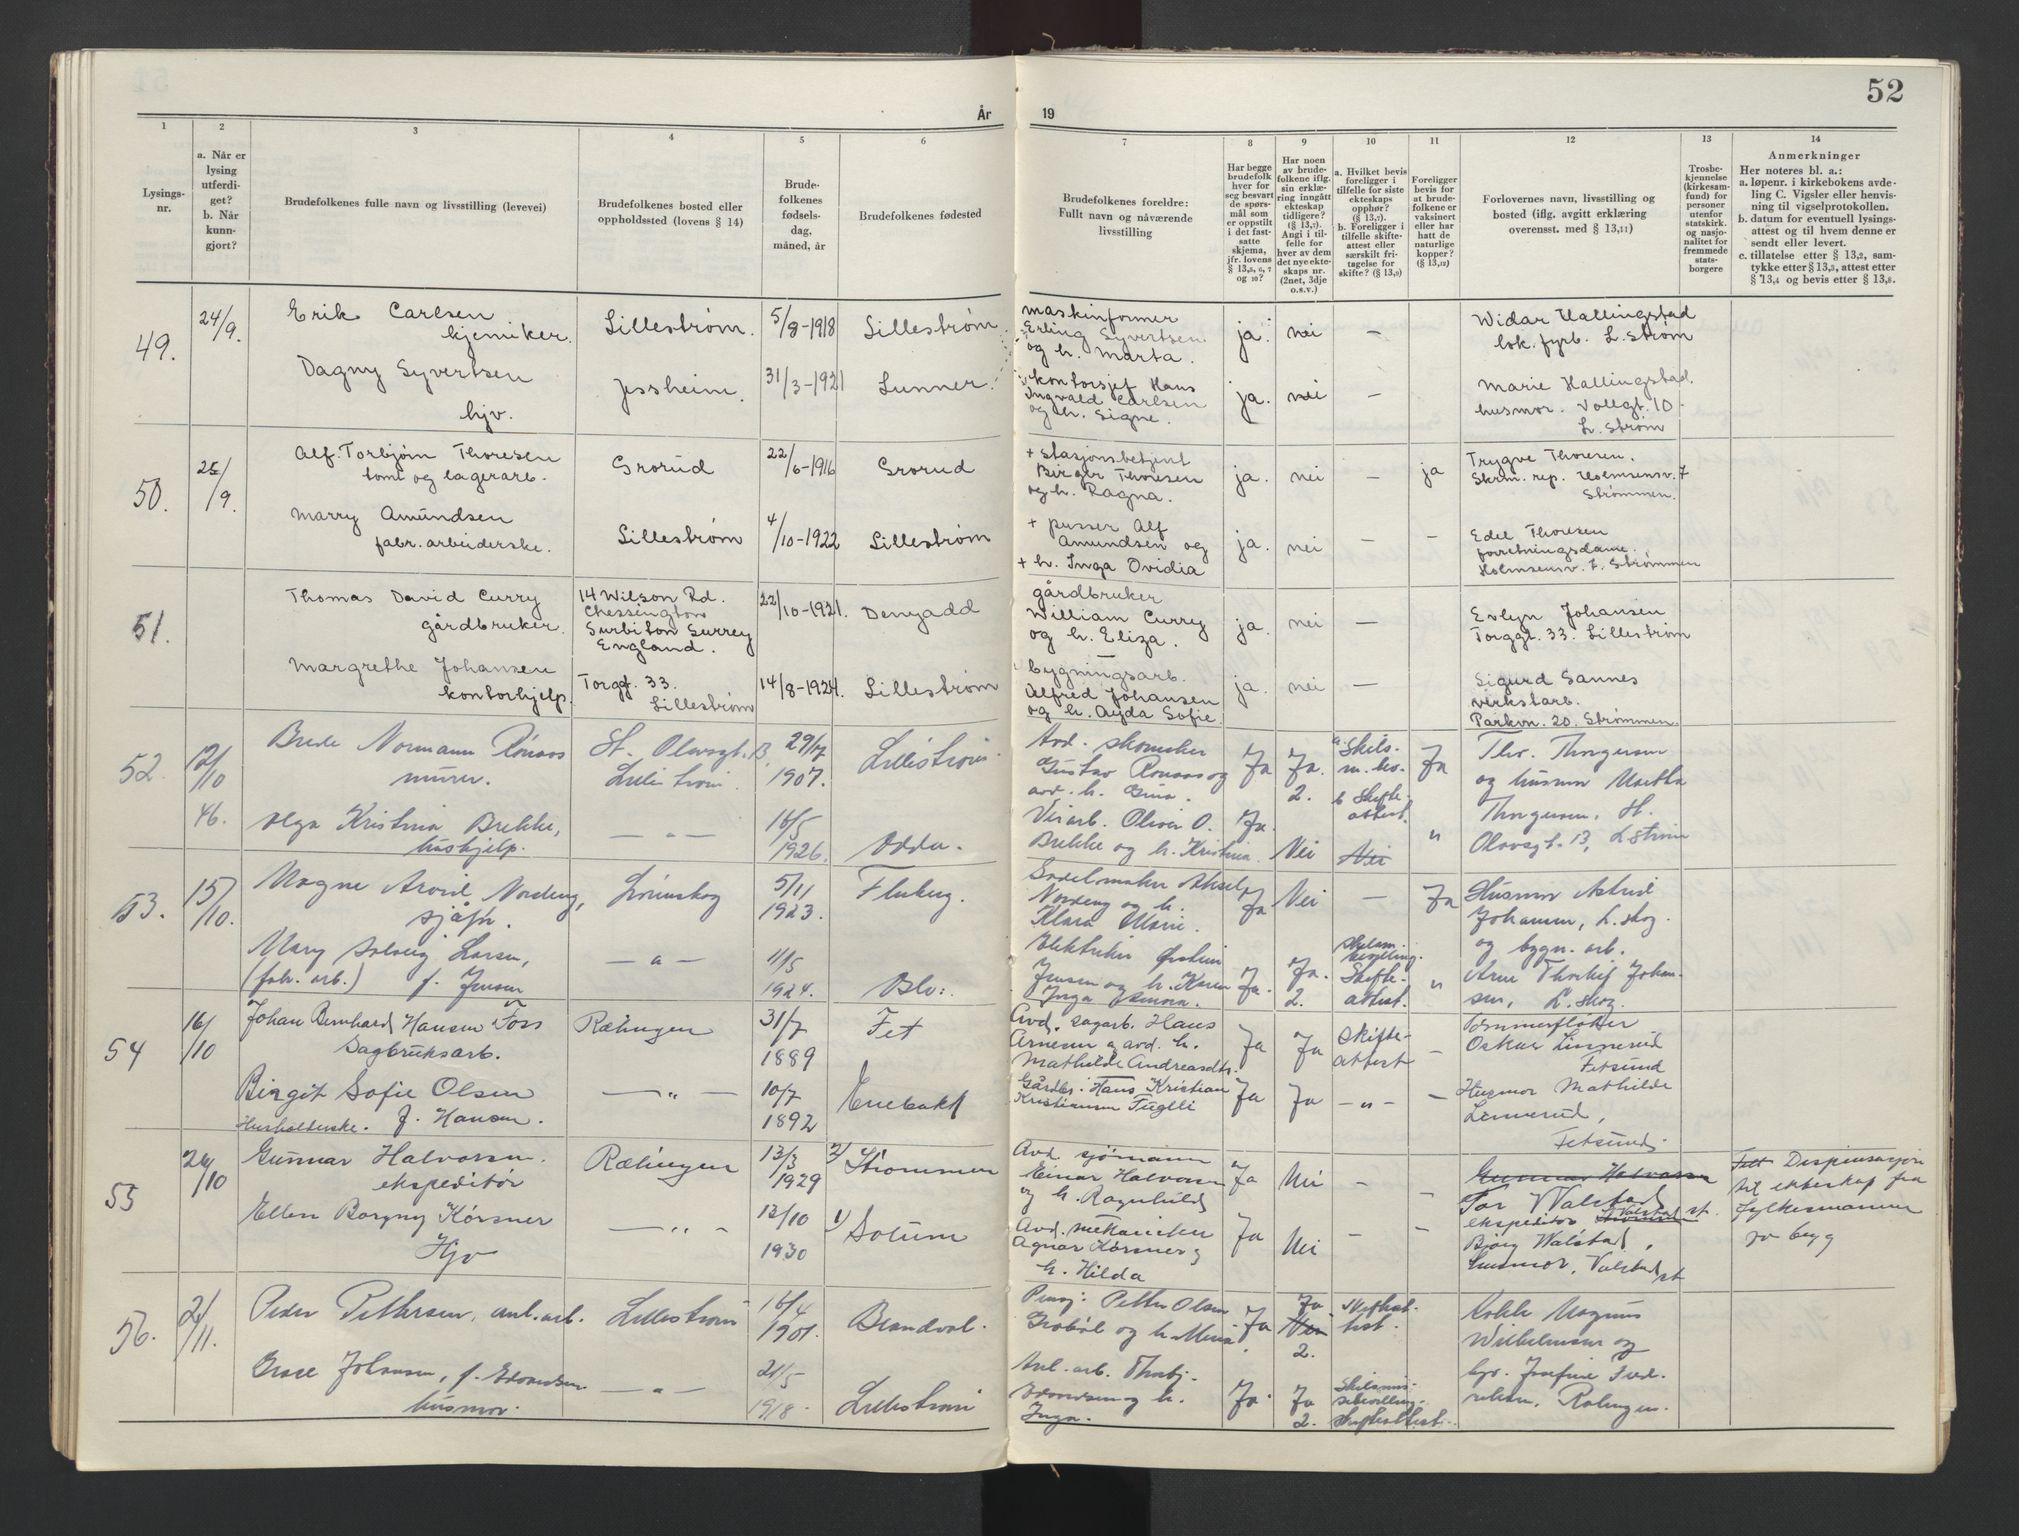 52
År
19
1
2
3
4
5
6
7
8
9
10
11
12
13
14
Lysings-
nr.
a. Når er
lysing
utferdi-
get?
b. Når
kunn-
gjort?
Brudefolkenes fulle navn og livsstilling (levevei)
Brudefolkenes bosted eller
oppholdssted (lovens § 14)
Brude-
folkenes
fødsels-
dag,
måned, år
Brudefolkenes fødested
Brudefolkenes foreldre:
Fullt navn og nåværende
livsstilling
Har begge
brudefolk
hver for
seg besvart
de spørs-
mål som
er oppstilt
i det fast-
satte
skjema,
jfr. lovens
§ 13,5, 6, 7
og 10?
Har noen
av brude-
folkene iflg.
sin erklæ-
ring inngått
ekteskap
tidligere?
(§ 13,7).
Angi i til-
felle for
hver av dem
det nye ekte-
skaps nr.
(2net, 3dje
o.s.v.)
a. Hvilket bevis
foreligger i
tilfelle for siste
ekteskaps
opphør?
(§ 13,7).
b. Foreligger i
tilfelle skifte-
attest eller
særskilt fri-
tagelse for
skifte? (§ 13,9)
Foreligger
bevis for
at brude-
folkene er
vaksinert
eller har
hatt de
naturlige
kopper?
(§ 13,12)
Forlovernes navn, livsstilling og
bosted (iflg. avgitt erklæring
overensst. med § 13,11)
Trosbe-
kjennelse
(kirkesam-
fund) for
personer
utenfor
statskirk.
og nasjo-
nalitet for
fremmede
stats-
borgere
Anmerkninger
Her noteres bl. a.:
a. løpenr. i kirkebokens avde-
ling C. Vigsler eller henvis-
ning til vigselprotokollen.
b. datum for eventuell lysings-
attest og til hvem denne er
sendt eller levert.
c. tillatelse etter § 13,2, sam-
tykke etter § 13,3, attest etter
§ 13,4 og bevis etter § 13,8.
49.
24/9.
Erik Carlsen
kjemiker.
Lillestrøm.
5/8-1918
Lillestrøm
maskinformer
Erling Syvertsen
og h. Marta.
ja.
nei
—
Widar Hallingstad
lok. fyrb. L. Strøm
Dagny Syvertsen
hjv.
Jessheim.
31/3-1921
Lunner.
kontorsjef Hans
Ingvald Carlsen
og h. Signe.
ja.
nei
—
Marie Hallingstad.
husmor. Vollgt. 10
L. Strøm
50.
25/9.
Alf Torbjørn Thoresen
tomt og lagerarb.
Grorud
22/6-1916
Grorud
+ stasjonsbetjent
Birger Thoresen
og h. Ragna.
ja.
nei
—
ja
Trygve Thoresen.
Skrm. rep. Holmsensv. 7
Strømmen.
Marry Amundsen
fabr. arbeiderske.
Lillestrøm
4/10-1922
Lillestrøm
+ pusser Alf
Amundsen og
+ h. Inga Ovidia
ja.
nei
—
—
Edel Thoresen
forretningsdame.
Holmsensv. 7. Strømmen
51.
Thomas David Curry
gårdbruker.
14 Wilson Rd.
Chessington
Surbiton Surrey
England.
22/10-1921.
Denyadd
gårdbruker
William Curry
og h. Eliza.
ja.
nei
—
Evlyn Johansen
Torggt. 33. Lillestrøm
Margrethe Johansen
kontorhjelp.
Torggt. 33.
Lillestrøm
14/8-1924.
Lillestrøm
bygningsarb.
Alfred Johansen
og h. Ayda Sofie.
ja.
nei
—
Sigurd Sannes
verkstarb.
Parkvn. 20. Strømmen.
52.
12/10
46.
Brede Normann Rönaas
murer.
St. Olavsgt. 13,
Lillestrøm.
29/12
1907.
Lillestrøm.
Avd. skomaker
Gustav Rönaas og
avd. h. Gina.
Ja
Ja.
2.
a Skils-
m. bev.
b Skifte-
attest.
Ja
Thv. Thorgersen
og husmor Martha
Thorgersen, St.
Olavsgt. 13, L.strøm
Olga Kristina Brekke,
hushjelp.
— " —
16/5
1926.
Odda.
Veiarb. Oliver O.
Brekke og h. Kristina.
Ja.
Nei
Nei
"
53.
15/10.
Magne Arvid Nordeng,
sjåfør.
Lørenskog
5/11
1923.
Fluberg.
Sadelmaker Aksel
Nordeng og h.
Klara Marie.
Ja
Nei
—
Ja
Husmor Astrid
Johansen, L.skog.
og bygn. arb.
Arne Thorleif Johan-
sen, L.skog.
Mary Solveig Larsen,
(fabr. arb.) f. Jensen
— " —
11/5
1924.
Elektriker Øistein
Jensen og h. Karen
Inga
Ja.
Ja.
2.
Skifte-
attest.
"
54
16/10
Johan Bernhard Hansen Foss
Sagbruksarb.
Rælingen
31/7
1889
Fet
Avd. sagarb. Hans
Arnesen og avd. h.
Mathilde Andreasdtr.
Ja
Ja
Skifte-
attest
—
Tømmerfløter
Oskar Linnerud
Fetsund
Birgit Sofie Olsen
Husholderske. f. Hansen.
— " —
10/7
1892
Enebakk
Gårdbr. Hans Kristian
Kristiansen Tuglli
Ja
Ja
— " —
—
Husmor Mathilde
Linnerud,
Fetsund.
55
24/10
Gunnar Halvorsen.
ekspeditør
Rælingen
13/3
1929
2) Strømmen
Avd. sjømann
Einar Halvorsen
og h. Ragnhild
Ja
Nei
—
—
Gunnar Halvorsen
Tor Walstad
ekspeditør, Valstad st.
Bjørg Walstad,
husmor, Valstad st
Fått Dispensasjon
til ekteskap fra
fylkesmannen
Ellen Borgny Körsner
Hjv
— " —
13/10
1930
1) Solum
Avd. mekaniker
Agnar Körsner og
h. Hilda
Ja
Nei
—
—
56.
2/11.
Peder Pettersen, anl. arb.
Lillestrøm
16/4
1901.
Brandval.
Pens. Petter Olsen
og h. Maria.
Ja
Ja
Nei
2.
Skifteat-
test.
Kokk Magnus
Wilhelmsen og
hjv. Josefine Fred-
riksen, Rælingen.
Grace Johansen, f. Edvardsen
husmor.
— " —
21/5
1918.
Lillestrøm
Anl. arb. Thorbj.
Edvardsen og h.
Inga.
Ja.
Ja
2.
Skilsmis-
sebevilling.
Skifteattest.